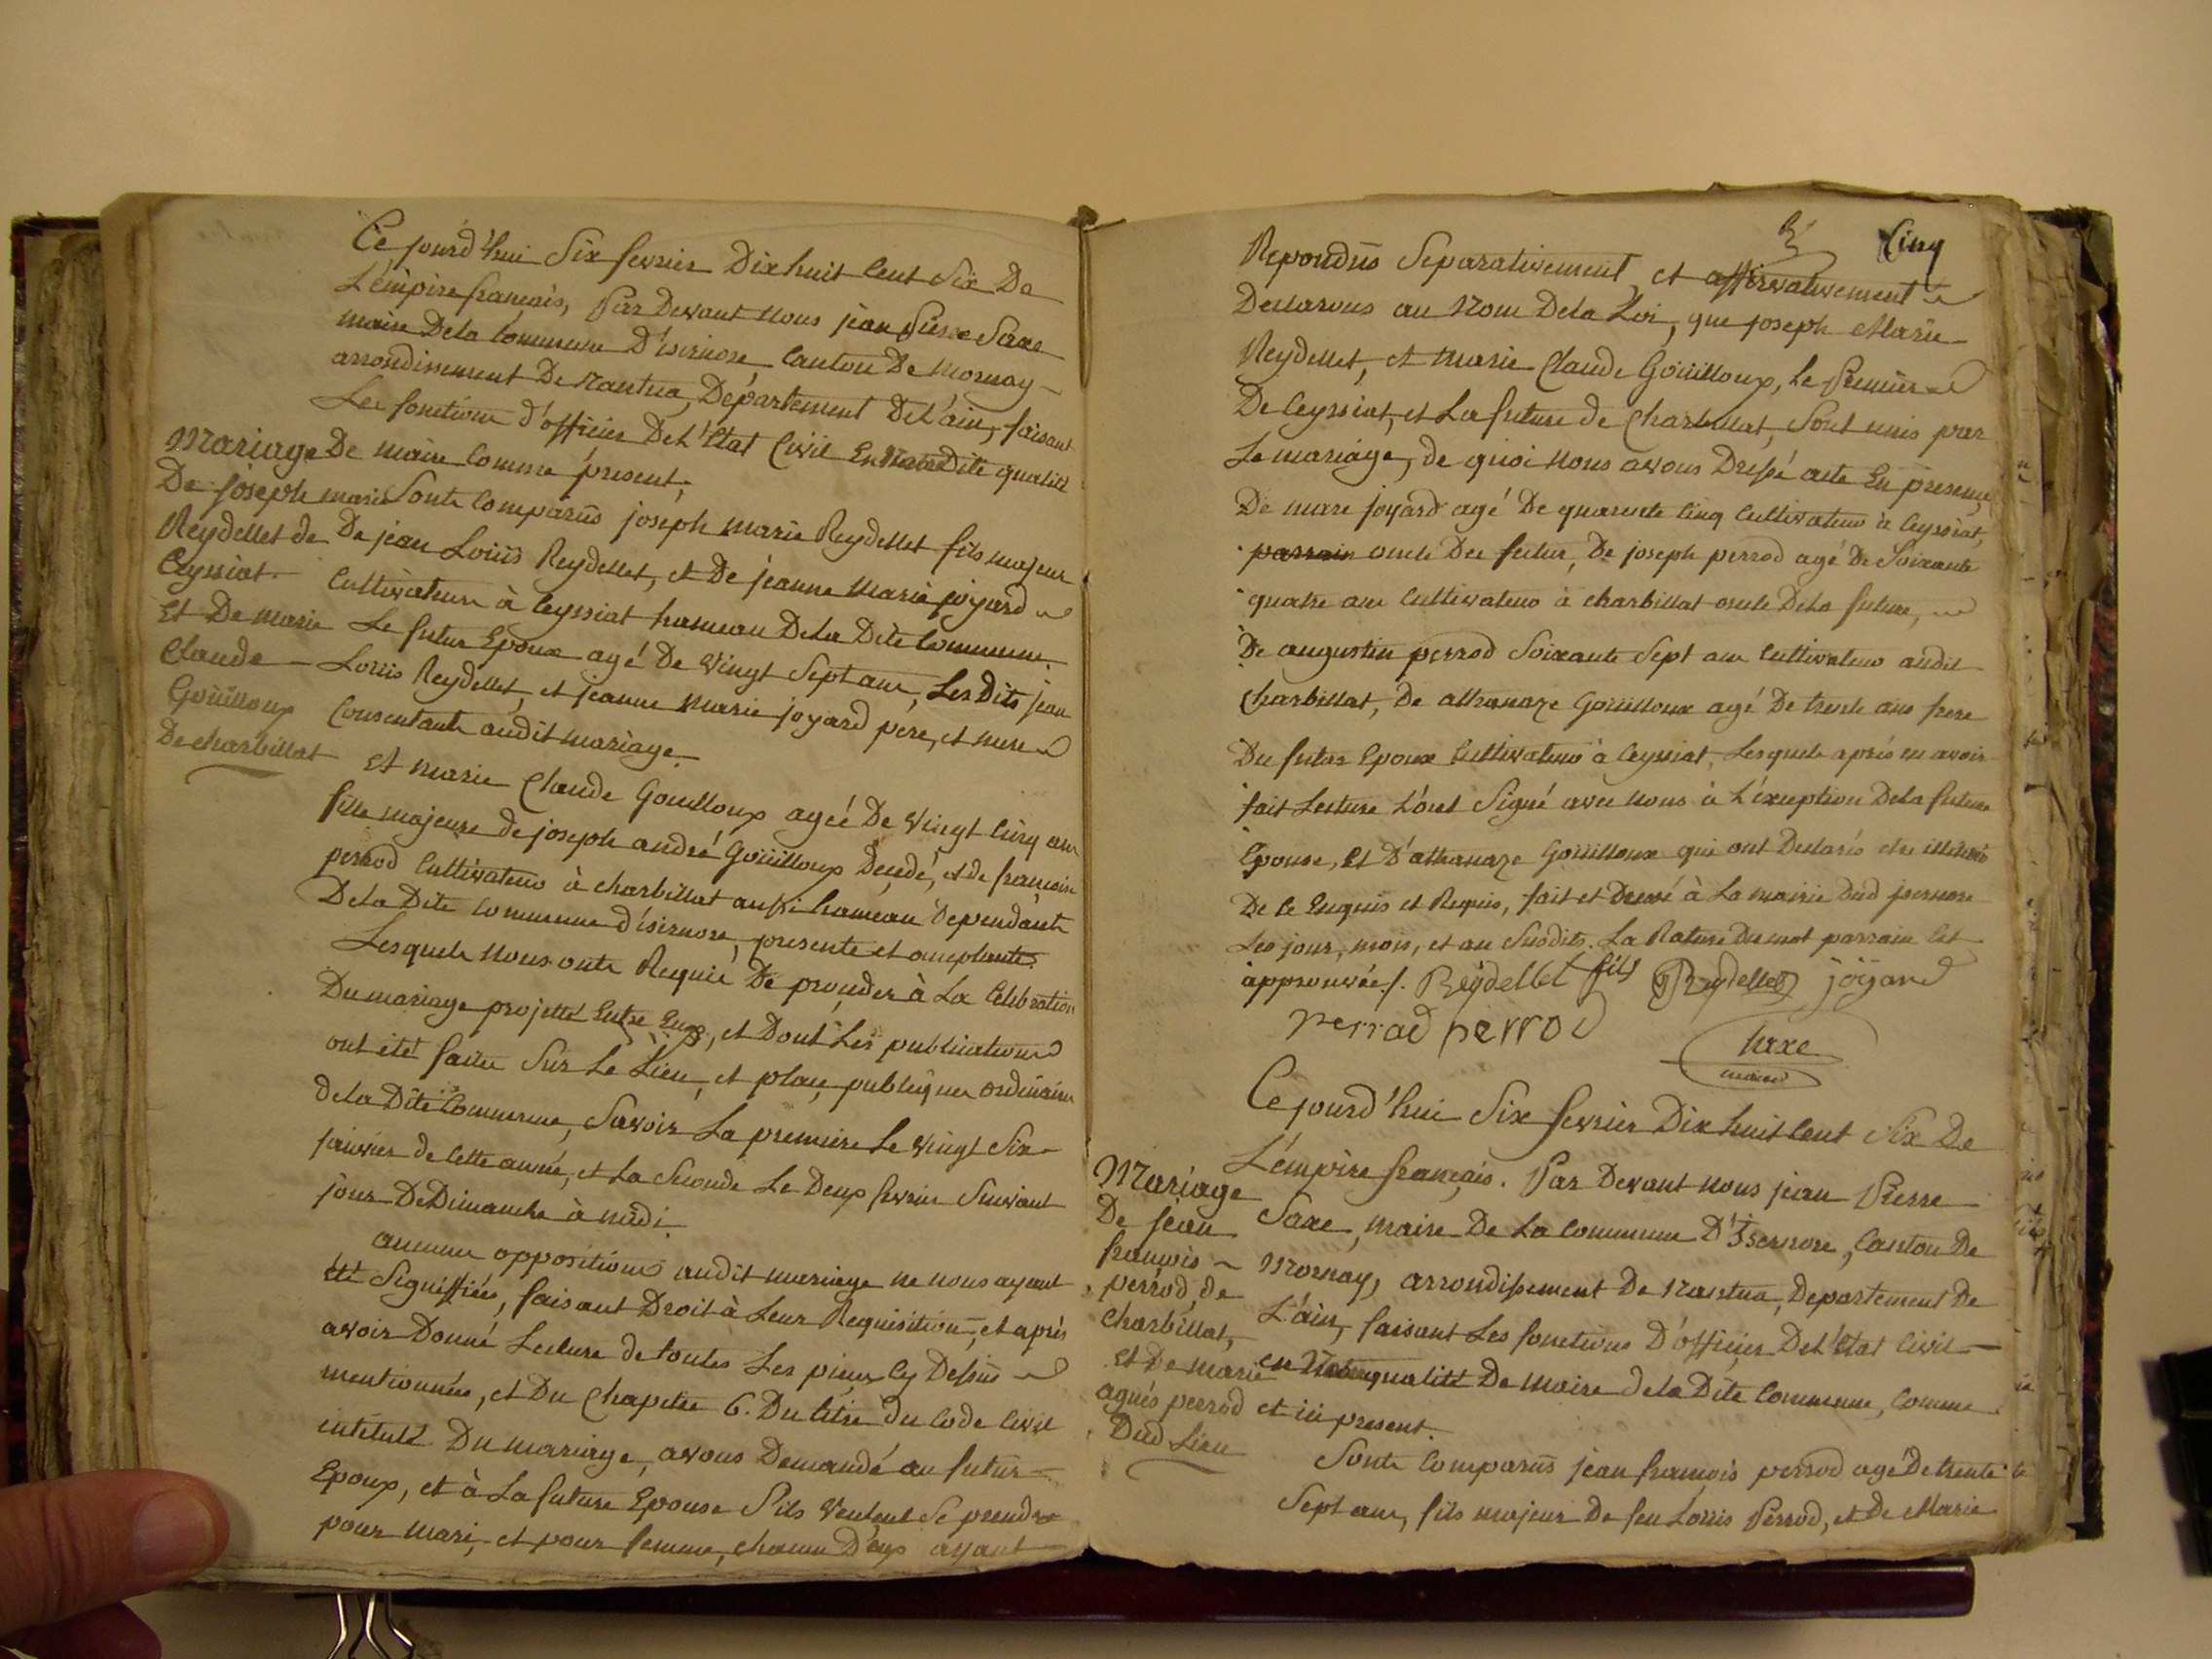 Ce jourd'hui Six fevrier Dix huit Cent Six De
L'émpire français, Par Devant nous jean Pierre Saxe
maire Dela Commune D'isernore, Canton De Mornay
arrondissement De Nantua, Département Del'ain, faisant
Les fonctions d'officier Del'Etat Civil En Notre Dite qualité
De maire Comme present.
Mariage
De joseph marie
Reydellet de
Ceyssiat
Et De marie
Claude
Goüilloux
De charbillat
Sonts Comparüs joseph marie Reydellet fils majeur
De jean Loüis Reydellet, et De jeanne Marie joyard
Cultivateurs à Ceyssiat hameau Dela Dite Commune.
Le futur Epoux agé De Vingt Sept ans, Les Dits jean
Louis Reydellet, et jeanne Marie joyard pere, et mere
Consentants audit mariage.
Et marie Claude Gouilloux ageé De Vingt Cinq ans
fille majeure de joseph andré Goüilloux Deçedé, et de françoise
perrod Cultivateurs à charbillat aussi hameau dependant
Dela Dite Commune d'isernore, presente et acceptante.
Lesquels nous onts Requis De proçeder à La Celebration
Du mariage projetté Entre Eux, et Dont Les publications
ont eté faites Sur Le Lieu, et place publique ordinaire
dela Dite Commune, Savoir La premiere Le Vingt Six
janvier de Cette année, et La Seconde Le Deux fevrier Suivant
jour De Dimanche à midi.
aucune oppositions audit mariage ne nous ayant
été Signiffiées, faisant Droit à Leur Requisition, et aprés
avoir Donné Lecture de toutes Les pieces Cy Dessus
mentionnées, et Du Chapitre 6. Du titre du Code Civil
intitulé Du mariage, avons Demandé au futur
Epoux, et à La future Epouse S'ils Veulent Se prendre
pour mari, et pour femme, chacun D'eux ayant
Cinq
Repondüs Separativement, et affirmativement
Declarons au Nom Dela Loi, que joseph Marie
Reydellet, et Marie Claude Goüilloux, Le Premier
De Ceyssiat, et La future de Charbillat, Sont unis par
Le mariage, de quoi nous avons Dressé acte En presence
De marc joyard agé De quarente Cinq Cultivateur à Ceyssiat,
parrain oncle Du futur, De joseph perrod agé De Soixante
quatre ans Cultivateur à charbillat oncle Dela future,
De augustin perrod Soixante Sept ans Cultivateur audit
Charbillat, De athanaze Goüilloux agé De trente ans frere
Du futur Epoux Cultivateur à Ceyssiat, Lesquels aprés en avoir
fait Lecture L'ont Signé avec nous à L'exeption Dela future
Epouse, Et D'athanaze Goüilloux qui ont Declarés etre illiterés
De Ce Enquis et Requis, fait et Dressé à La mairie Dud isernore
Les jour, mois, et an Susdits. La Rature Du mot parrain Est
approuvée./. Reÿdellet fils Reydellet jöyard
perrod perrod
Saxe
maire
Ce jourd'hui Six fevrier Dix huit Cent Six De
L'émpire français. Par Devant nous jean Pierre
Saxe, maire De La Commune D'Isernore, Canton De
Mornay, arrondissement De Nantua, Departement De
L'ain, faisant Les fonctions D'officier Del'Etat Civil
en Notre qualité De maire dela Dite Commune, Comme
et ici present.
Mariage
De jean
françois
perrod, de
Charbillat,
Et De marie
agnés perrod
Dud Lieu
Sonts Comparüs jean françois perrod agé De trente
Sept ans, fils majeur De feu Louis Perrod, et de Marie